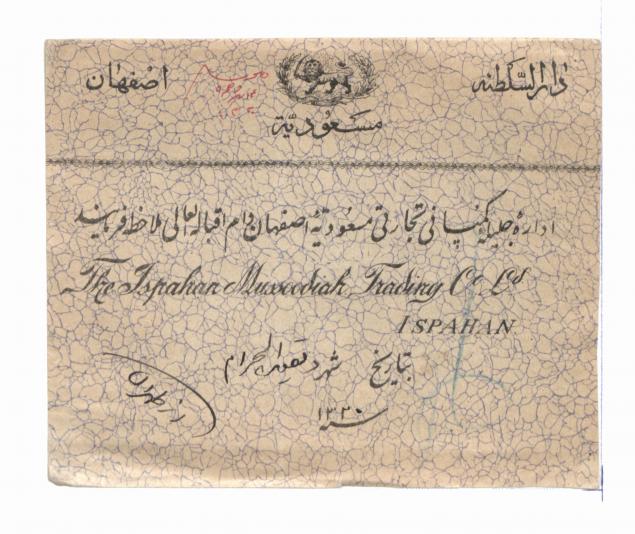 دارالسلطنه اصفهان
مسعودیّة
ادارهٔ جلیلهٔ کمپانی تجارتی مسعودیهٔ اصفهان دام اقباله العالی ملاحظه فرمایند
The Ispahan Mussoodiah Trading Co Ld
ISPAHAN
بتاریخ شهر ذیقعدة الحرام
سنه ۱۳۳۰
از طهران